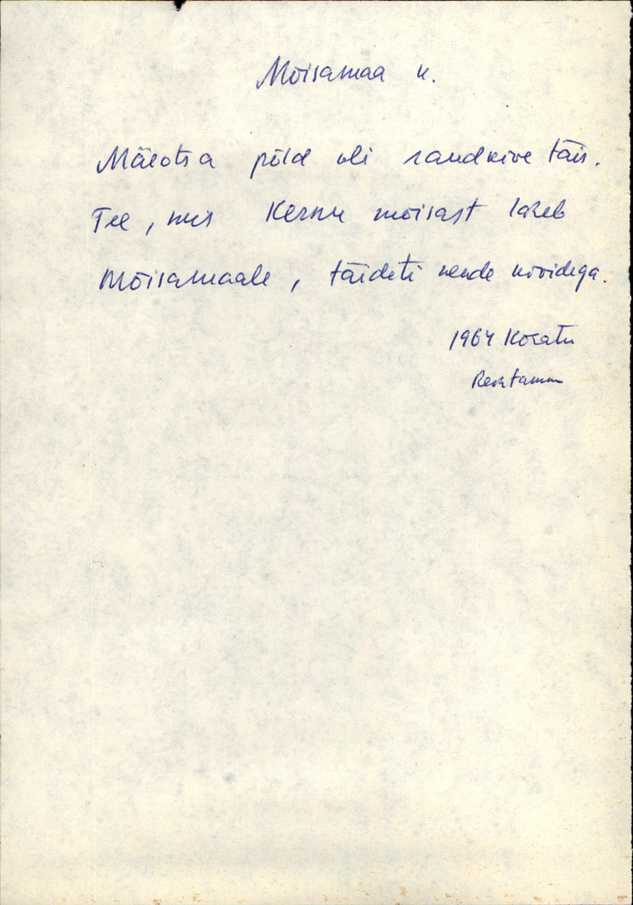 Mõisamaa k.
Mäeotsa põld oli raudkive täis.
Tee, mis Kernu mõisast läheb
Mõisamaale, täideti nende kividega.
1964 Kosatu